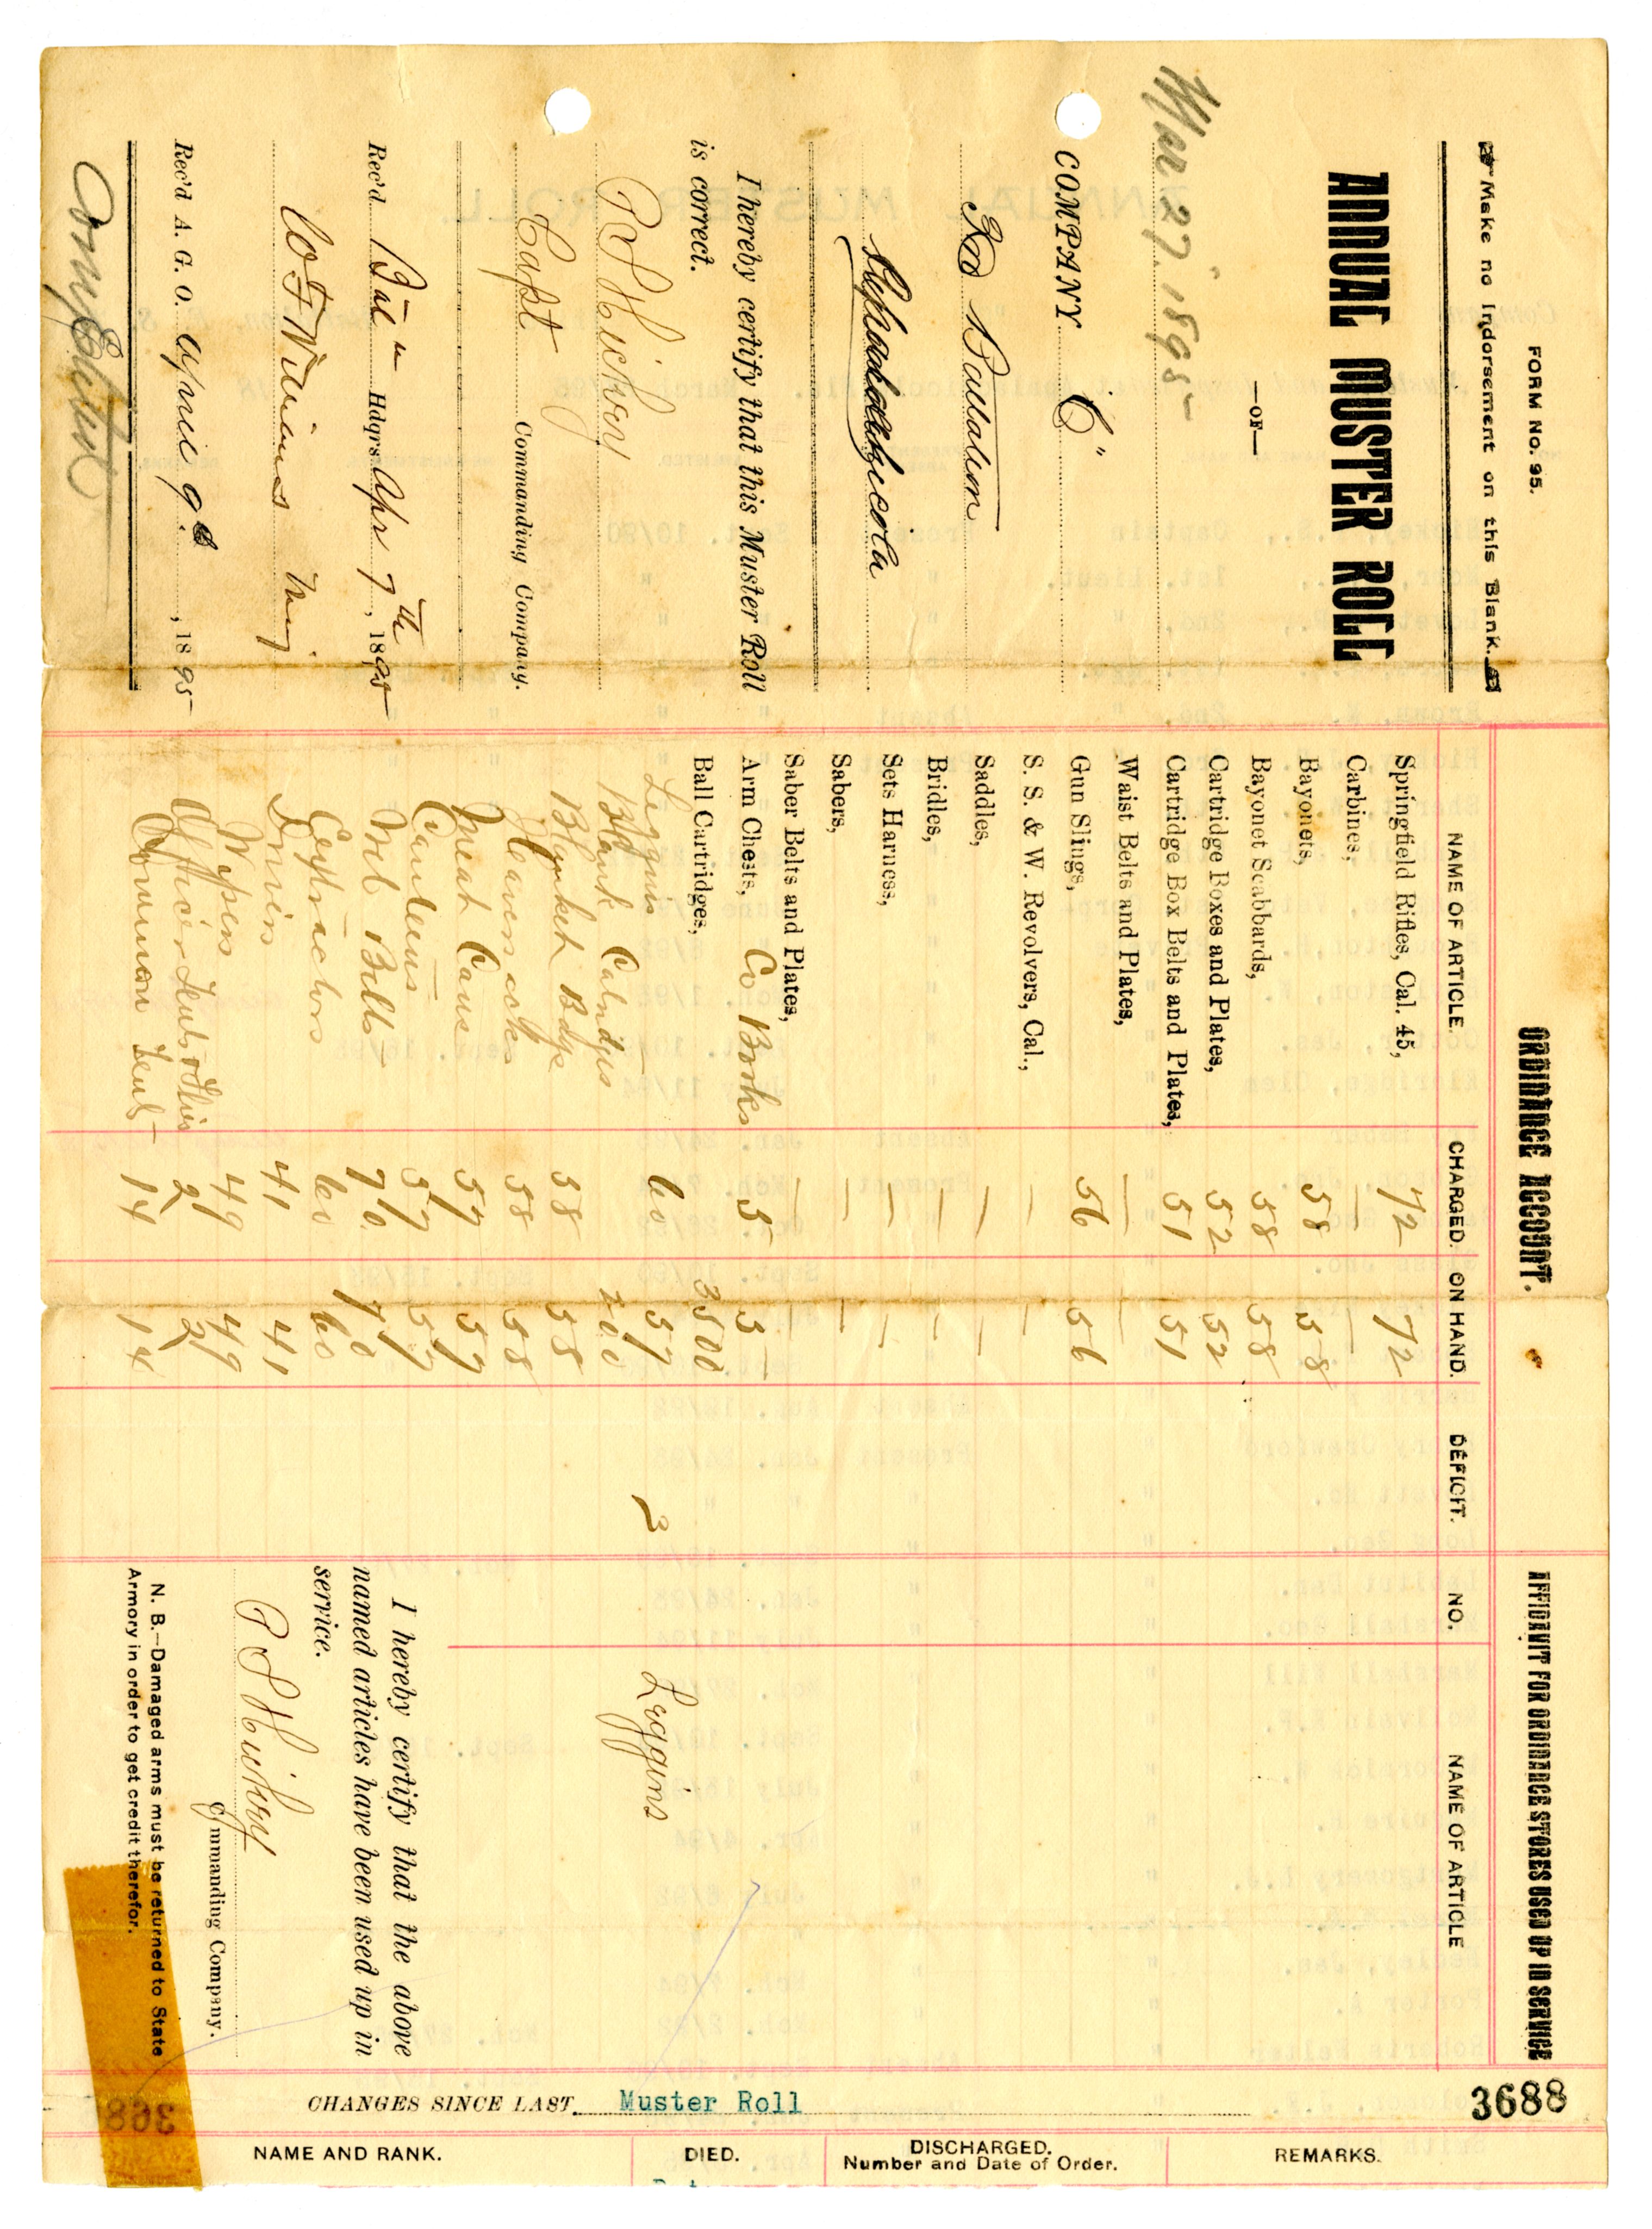 FORM No. 95.
Make no Indorsement on this Blank.
ANNUAL MUSTER ROLL
—OF—
Mar 27" 1895-
COMPANY "C"
3rd Battalion
Apalachicola
I hereby certify that this Muster Roll
is correct.
R H Hickey
Capt
Commanding Company.
Rec'd Bat'n Hdqrs. Apr 7th, 1895
W F Williams Maj
Rec'd A. G. O. April 9th, 1895-
ORDNANCE ACCOUNT.
NAME OF ARTICLE. CHARGED. ON HAND. DEFICIT.
Springfield Rifles, Cal. 45, 72 72
Carbines, — —
Bayonets, 58 58
Bayonet Scabbards, 58 58
Cartridge Boxes and Plates, 52 52
Cartridge Box Belts and Plates, 51 51
Waist Belts and Plates, — —
Gun Slings, 56 56
S. S. & W. Revolvers, Cal.,
Saddles, — —
Bridles, — —
Sets Harness, — —
Sabers, — —
Saber Belts and Plates, — —
Arm Chests, Co Books 5 5
Ball Cartridges, 3500
Leggins 60 57 3
Blank Catridges 200
Blanket Bags 58 58
Haversacks 58 58
Meat Cans 57 57
Canteens 57 57
Web Belts 70 70
Extractors 60 60
41 41
Wipers 49 49
Officer Tents & Flies 2 2
Common Tents 14 14
AFFIDAVIT FOR ORDNANCE STORES USED UP IN SERVICE
NO. NAME OF ARTICLE
Leggins
I hereby certify that the above
named articles have been used up in
service.
R H Hickey
Commanding Company.
N. B.—Damaged arms must be returned to State
Armory in order to get credit therefor.
3688
CHANGES SINCE LAST Muster Roll
NAME AND RANK. DIED. DISCHARGED. Number and Date of Order. REMARKS.
368